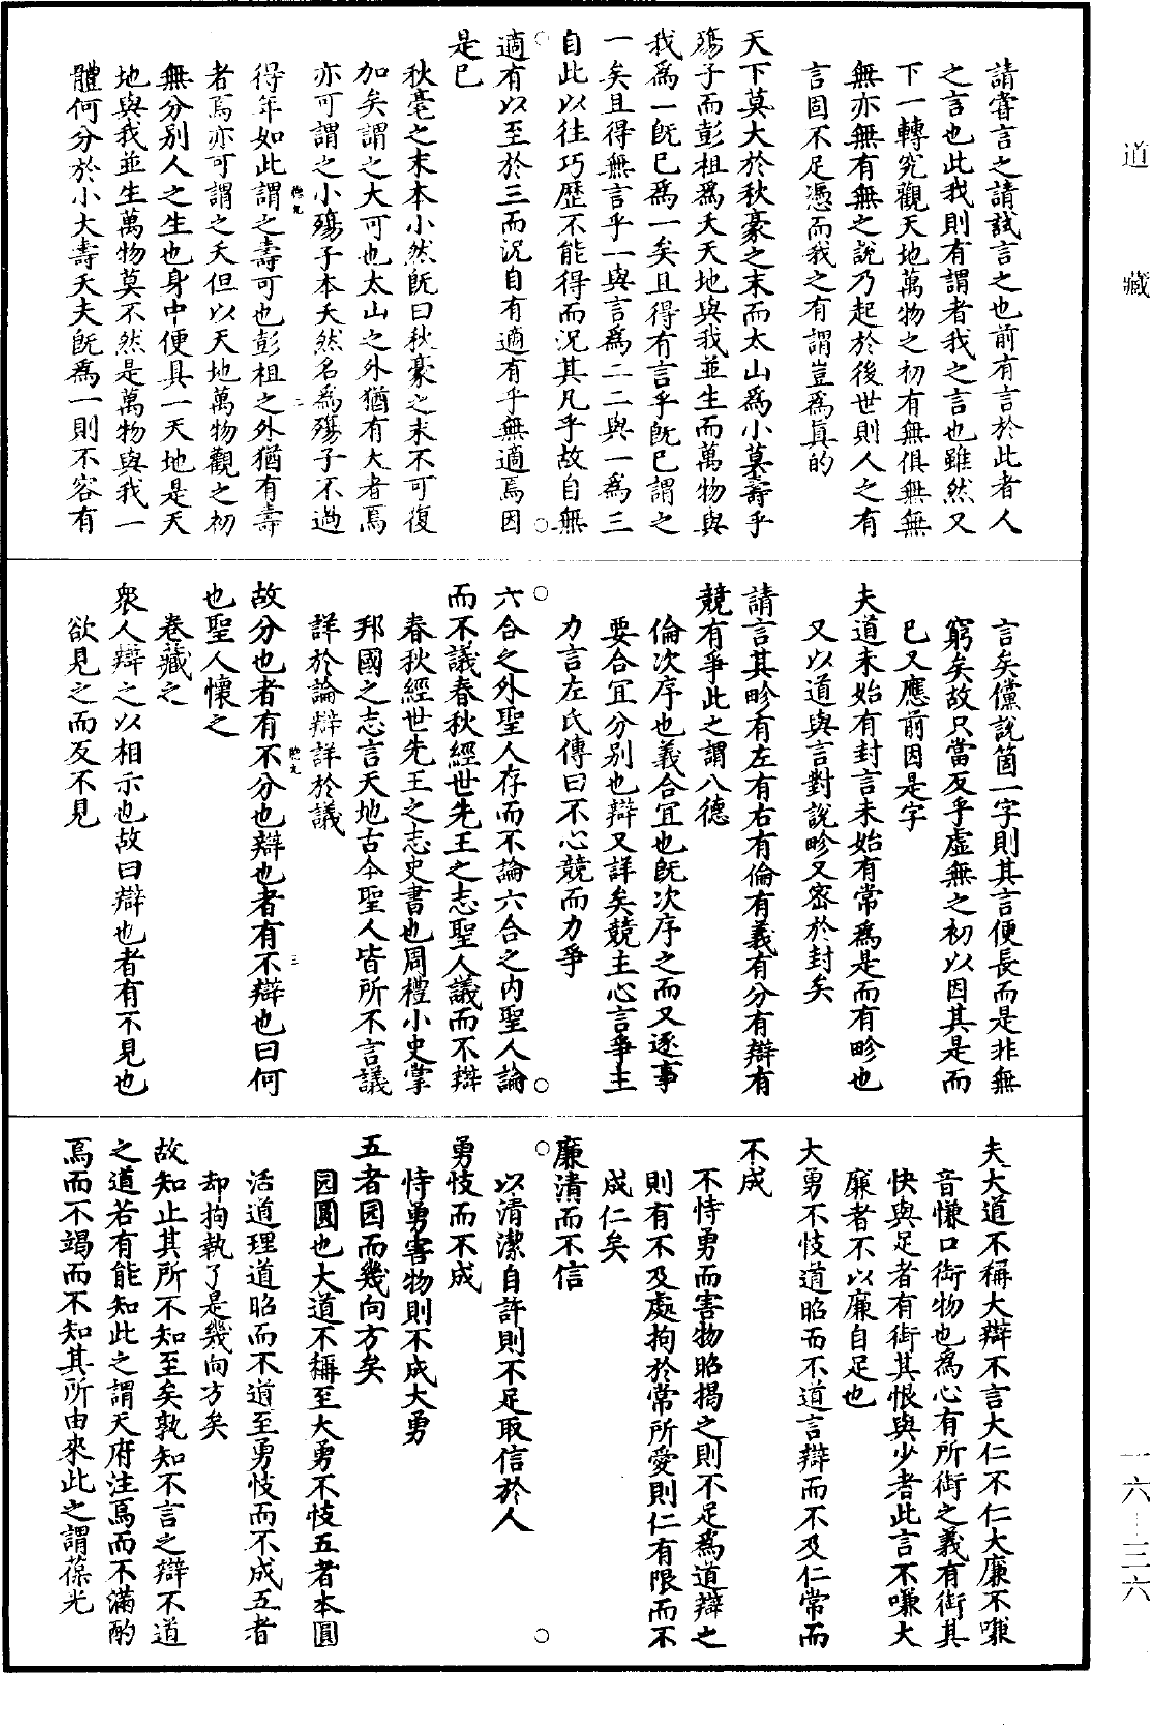 道藏
請嘗言之請試言之也前有言於此者人
之言也此我則有謂者我之言也雖然又
下一轉究觀天地萬物之初有無俱無無
無亦無有無之說乃起於後世則人之有
言固不足憑而我之有謂豈為眞的
天下莫大於秋豪之末而太山為小莫壽乎
殤子而彭祖為夭天地與我並生而萬物與
我為一旣已為一矣且得有言乎旣已謂之
一矣且得無言乎一與言為二二與一為三
自此以往巧歷不能得而況其凡乎故自無
適有以至於三而況自有適有乎無適焉因
是已
秋毫之末本小然旣曰秋豪之末不可復
加矣謂之大可也太山之外猶有大者焉
亦可謂之小殤子本夭然名為殤子不過
得年如此謂之壽可也彭祖之外猶有壽
者焉亦可謂之夭但以天地萬物觀之初
無分别人之生也身中便具一天地是天
地與我並生萬物莫不然是萬物與我一
體何分於小大壽夭夫旣為一則不容有
言矣儻說箇一字則其言便長而是非無
窮矣故只當反乎虛無之初以因其是而
已又應前因是字
夫道未始有封言未始有常為是而有畛也
又以道與言對說畛又密於封矣
請言其畛有左有右有倫有義有分有辯有
競有爭此之謂八德
倫次序也義合宜也旣次序之而又逐事
要合宜分别也辯又詳矣競主心言爭主
力言左氏傳曰不心競而力爭
六合之外聖人存而不論六合之内聖人論
而不議春秋經世先王之志聖人議而不辯
春秋經世先王之志史書也周禮小史掌
邦國之志言天地古今聖人皆所不言議
詳於論辯詳於議
故分也者有不分也辯也者有不辯也曰何
也聖人懷之
卷藏之
衆人辯之以相示也故曰辯也者有不見也
欲見之而反不見
夫大道不稱大辯不言大仁不仁大廉不嗛
音慊口銜物也為心有所銜之義有銜其
快與足者有銜其恨與少者此言不嗛大
廉者不以廉自足也
大勇不忮道昭而不道言辯而不及仁常而
不成
不恃勇而害物昭揭之則不足為道辯之
則有不及處拘於常所愛則仁有限而不
成仁矣
廉清而不信
以清潔自許則不足取信於人
勇忮而不成
恃勇害物則不成大勇
五者园而幾向方矣
园圓也大道不稱至大勇不忮五者本圓
活道理道昭而不道至勇忮而不成五者
却拘執了是幾向方矣
故知止其所不知至矣孰知不言之辯不道
之道若有能知此之謂天府注焉而不滿酌
焉而不竭而不知其所由來此之謂葆光
一六—三六